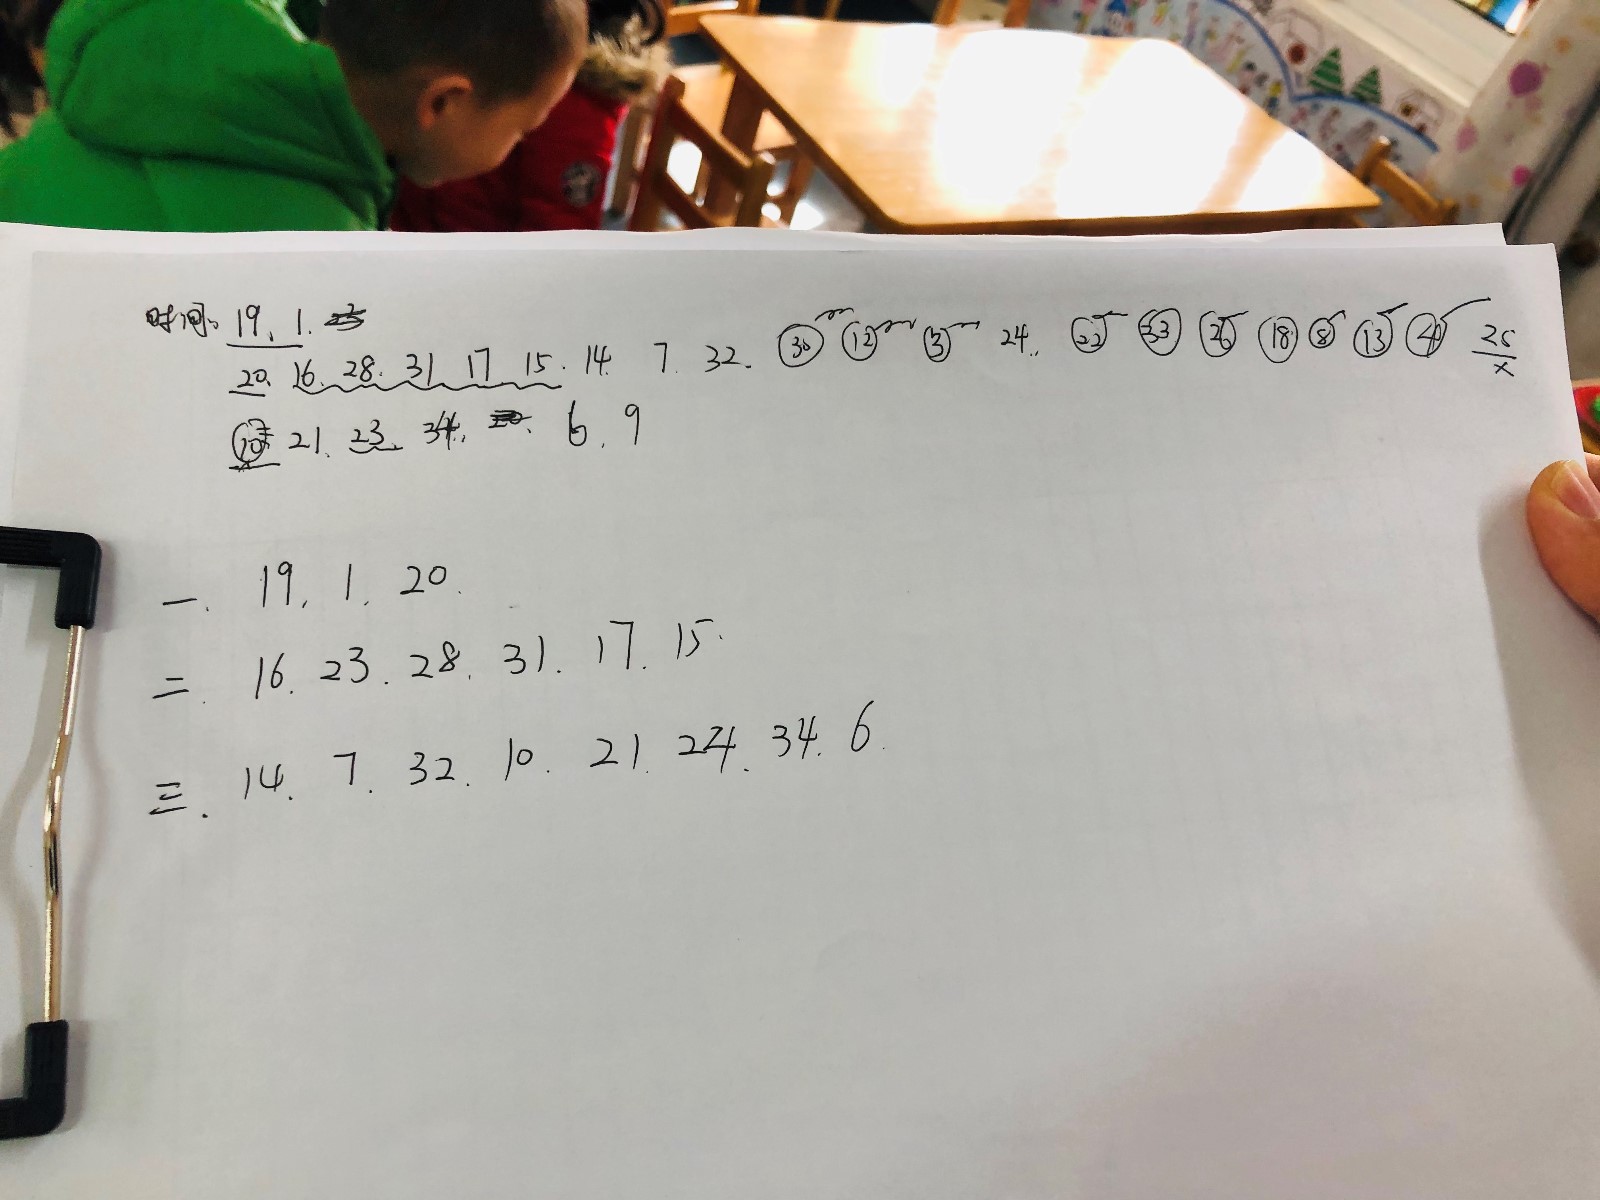 时间: 19. 1.
20. 16. 28. 31 17 15. 14. 7. 32. 30 12 3 24. 22 33 26 18 8 13 4 25
x
10 21. 23. 34. 6. 9
一. 19. 1. 20.
二. 16. 23. 28. 31. 17. 15.
三. 14. 7. 32. 10. 21. 24. 34. 6.